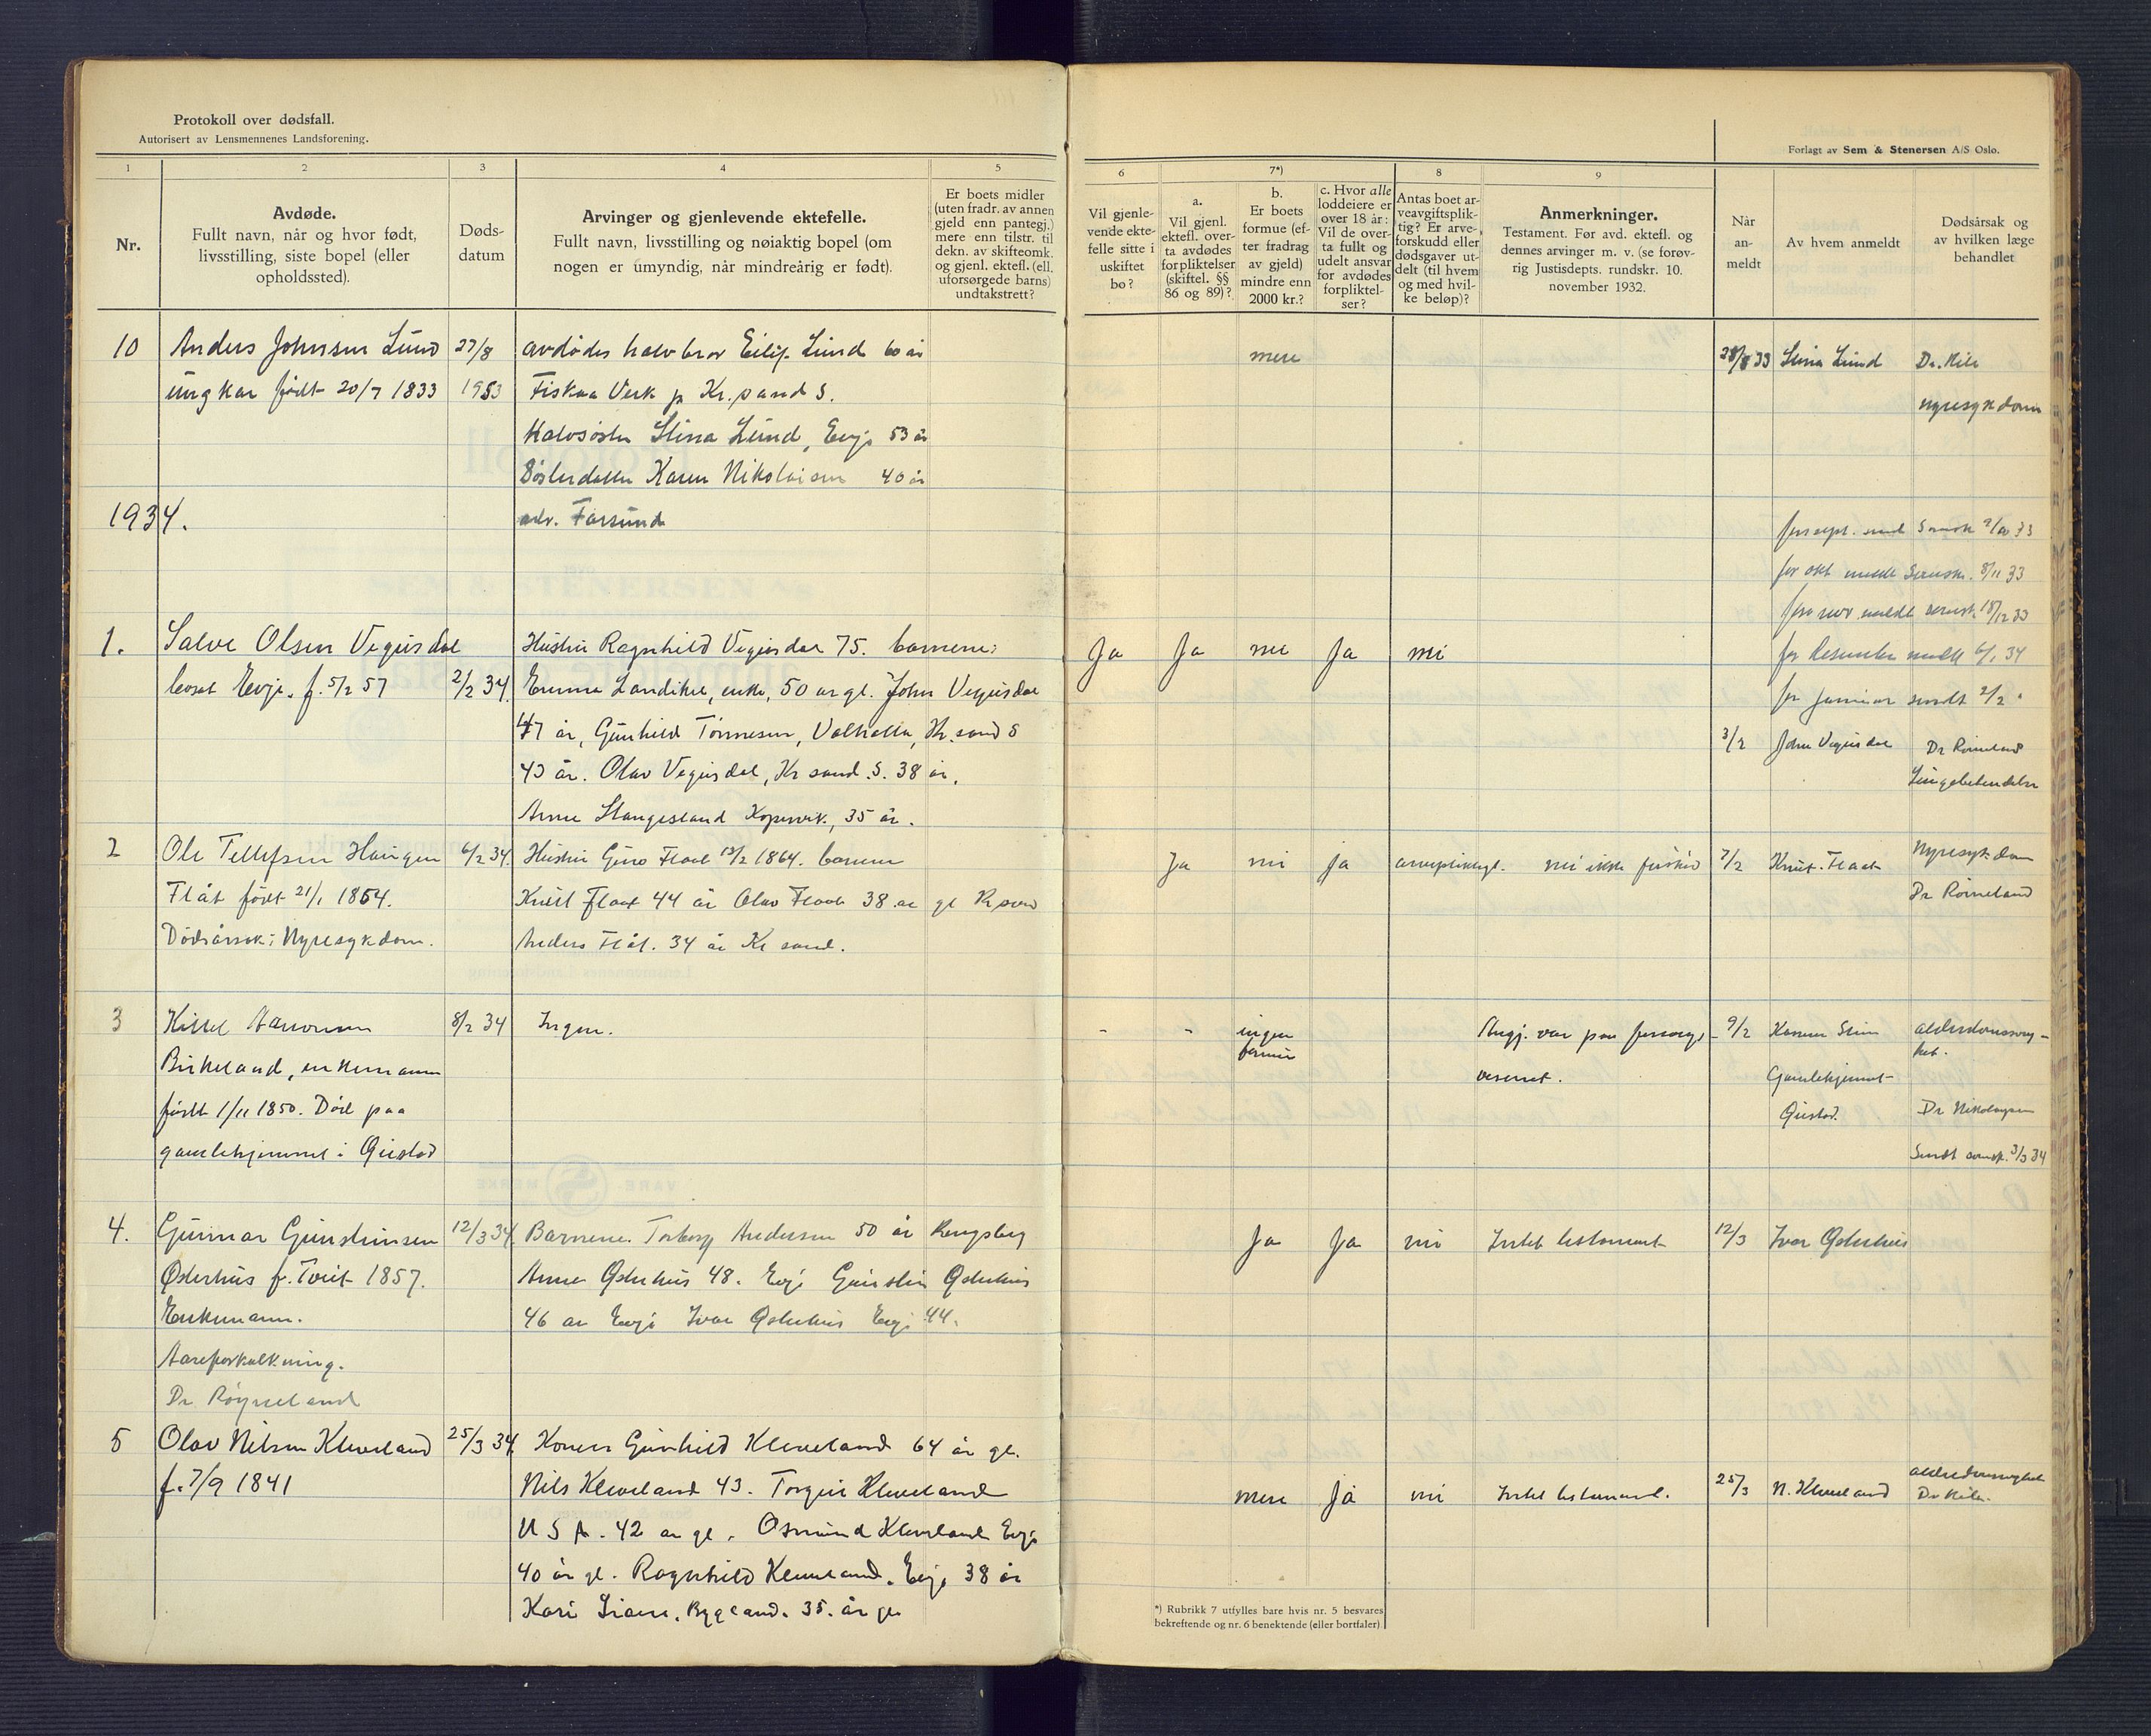 Protokoll over dødsfall.
Autorisert av Lensmennenes Landsforening.
Forlagt av Sem & Stenersen A/S Oslo.
1 2 3 4 5 6 7*) 8 9
Nr.
Avdøde.
Fullt navn, når og hvor født,
livsstilling, siste bopel (eller
opholdssted).
Døds-
datum
Arvinger og gjenlevende ektefelle.
Fullt navn, livsstilling og nøiaktig bopel (om
nogen er umyndig, når mindreårig er født).
Er boets midler
(uten fradr. av annen
gjeld enn pantegj.)
mere enn tilstr. til
dekn. av skifteomk.
og gjenl. ektef. (ell.
uforsørgede barns)
undtakstrett?
Vil gjenle-
vende ekte-
felle sitte i
uskiftet
bo?
a.
Vil gjenl.
ektefl. over-
ta avdødes
forpliktelser
(skiftel. §§
86 og 89)?
b.
Er boets
formue (ef-
ter fradrag
av gjeld)
mindre enn
2000 kr.?
c. Hvor alle
loddeiere er
over 18 år:
Vil de over-
ta fullt og
udelt ansvar
for avdødes
forpliktel-
ser?
Antas boet ar-
veavgiftsplik-
tig? Er arve-
forskudd eller
dødsgaver ut-
delt (til hvem
og med hvil-
ke beløp)?
Anmerkninger.
Testament. Før avd. ektefl. og
dennes arvinger m. v. (se forøv-
rig Justisdepts. rundskr. 10.
november 1932.
Når
an-
meldt
Av hvem anmeldt
Dødsårsak og
av hvilken læge
behandlet
10 Anders Johnsen Lund 27/8 avdødes halvbror Eilif Lund 60 år mere 28/8 33 Stina Lund Dr. Kile
ungkar født 20/7 1833 1933 Fiskaa Verk p Kr.sand S. nyresykdom
Halvsøster Stina Lund, Evje 53 år
Søsterdatter Karen Nikolaisen 40 år
1934. adr. Farsund
for sept. sendt
for okt meldt 8/11 33
for nov meldt 18/12 33
1. Salve Olsen Vegusdal Hustru Ragnhild Vegusdal 75. barnene: Ja Ja nei Ja nei for desember meldt 6/1 34
bosat Evje. f. 5/2 57 2/2 34. Emma Landikel, enke, 50 år gl. John Vegusdal for januar sendt 2/2
47 år, Gunhild Tønnesen, Valhalla, Kr.sand S 3/2 John Vegusdal Dr Røineland
43 år. Olav Vegusdal, Kr sand. S. 38 år. Lungebetendelse
Anne Stangesland Kopervik, 35 år.
2 Ole Tellefsen Haugen 6/2 34. Hustru Guro Flaat 13/2 1864. barnene Ja nei ja nei ikke 7/2 Knut Flaat Nyresykdom
Flåt født 21/1 1864. Knut Flaat 44 år Olav Flaat 38 år gl Dr Røineland
Dødsårsak: Nyresykdom. Anders Flåt. 34 år Kr sand.
3 Kittel Aanonsen 8/2 34 Ingen. - - ingen formue Angj. var paa forsorgs- 9/2 alderdomssvag-
Birkeland, enkemann vesenet. het.
født 1/11 1850. Død paa Gamlehjemmet Gustad. Dr Nikolaysen
gamlehjemmet i Gustad Sendt 3/3 34
4. Gunnar Gunsteinsen 12/3 34. Barnene. Torborg Andersen 50 år Kongsberg Ja Ja nei Intet testament 12/3 Ivar Østerhus
Østerhus f. Tveit 1857. Anne Østerhus 48. Evje Gunstein Østerhus
Enkemann. 46 år Evje Ivar Østerhus Evje 44.
Aareforkalkning.
Dr. Røyneland
5 Olav Nilsen Kleveland 25/3 34. Konen Gunhild Kleveland 64 år gl.
f. 7/9 1841 Nils Kleveland 43. Torgeir Kleveland mere Ja nei Intet testament. 25/3 N. Kleveland alderdomssvaghet Dr Kile.
U S A. 42 år gl. Osmund Kleveland Evje
40 år gl. Ragnhild Kleveland. Evje 38 år
Kari Liane, Bygland. 35. år gl
*) Rubrikk 7 utfylles bare hvis nr. 5 besvares
bekreftende og nr. 6 benektende (eller bortfaler).